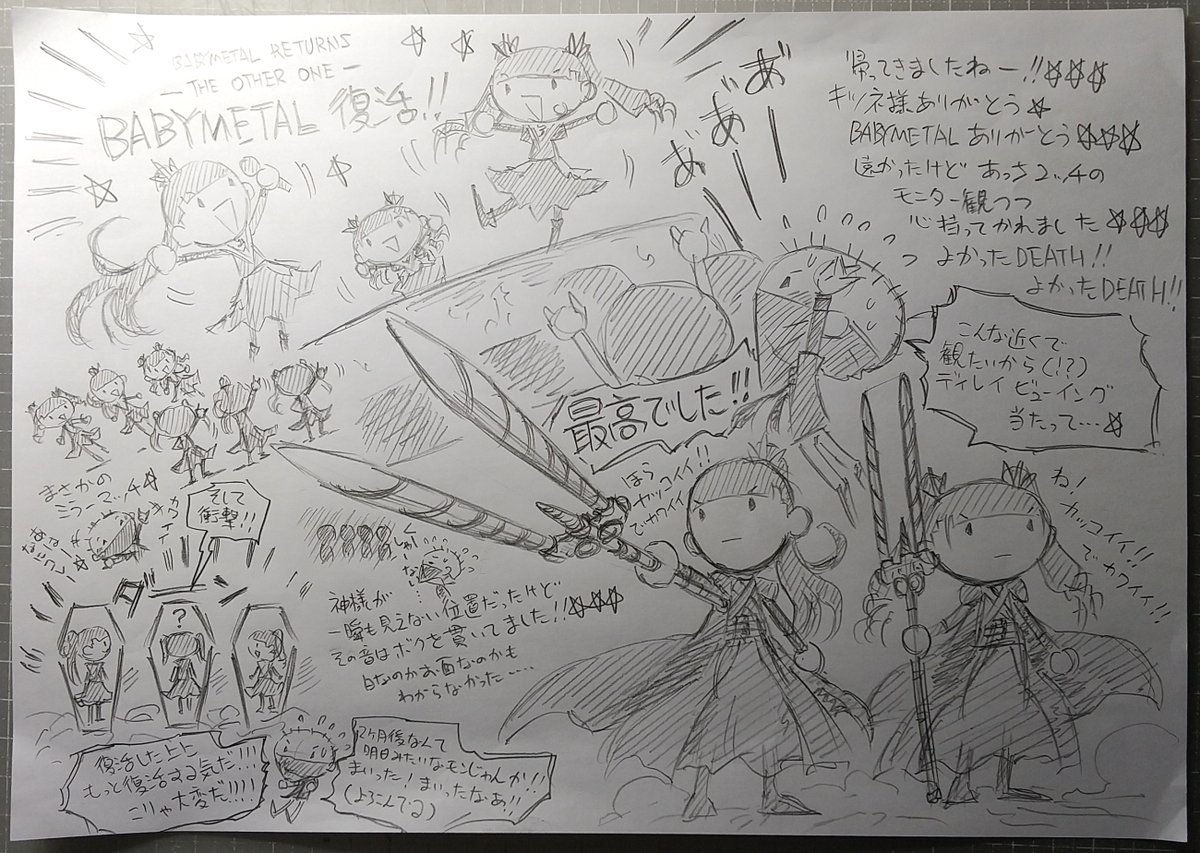 BABYMETAL RETURNS
— THE OTHER ONE —
BABYMETAL 復活!!
あ゛あ゛あ゛ーーー
帰ってきましたねー!!☆☆☆
キツネ様ありがとう☆
BABYMETALありがーとう☆☆☆
遠かったけど あっさ2ッチの
モニター観つつ
心持ってかれました☆☆☆
よかったDEATH!!
よかったDEATH!!
こんな近くで
観たいから(!?)
ディレイビューイング
当たって…☆
最高でした!!
ほら
カッコイイ!!
でカワイイ
ね!
カッコイイ!!
で カワイイ!!
まさかの
ミラーマッチ☆
カワイイ
そして
衝撃!!
神様が
一瞬も見えない位置だったけど
その音はボクを貫いてました!!☆☆☆
白なのかお面なのかも
わからなかった…
?
復活した上に
もっと復活する気だ!!!
こりゃ大変だ!!!!
2ヶ月後なんて
明日みたいなモンじゃんか!!
まいった!まいったなあ!!
(よろこんでる)